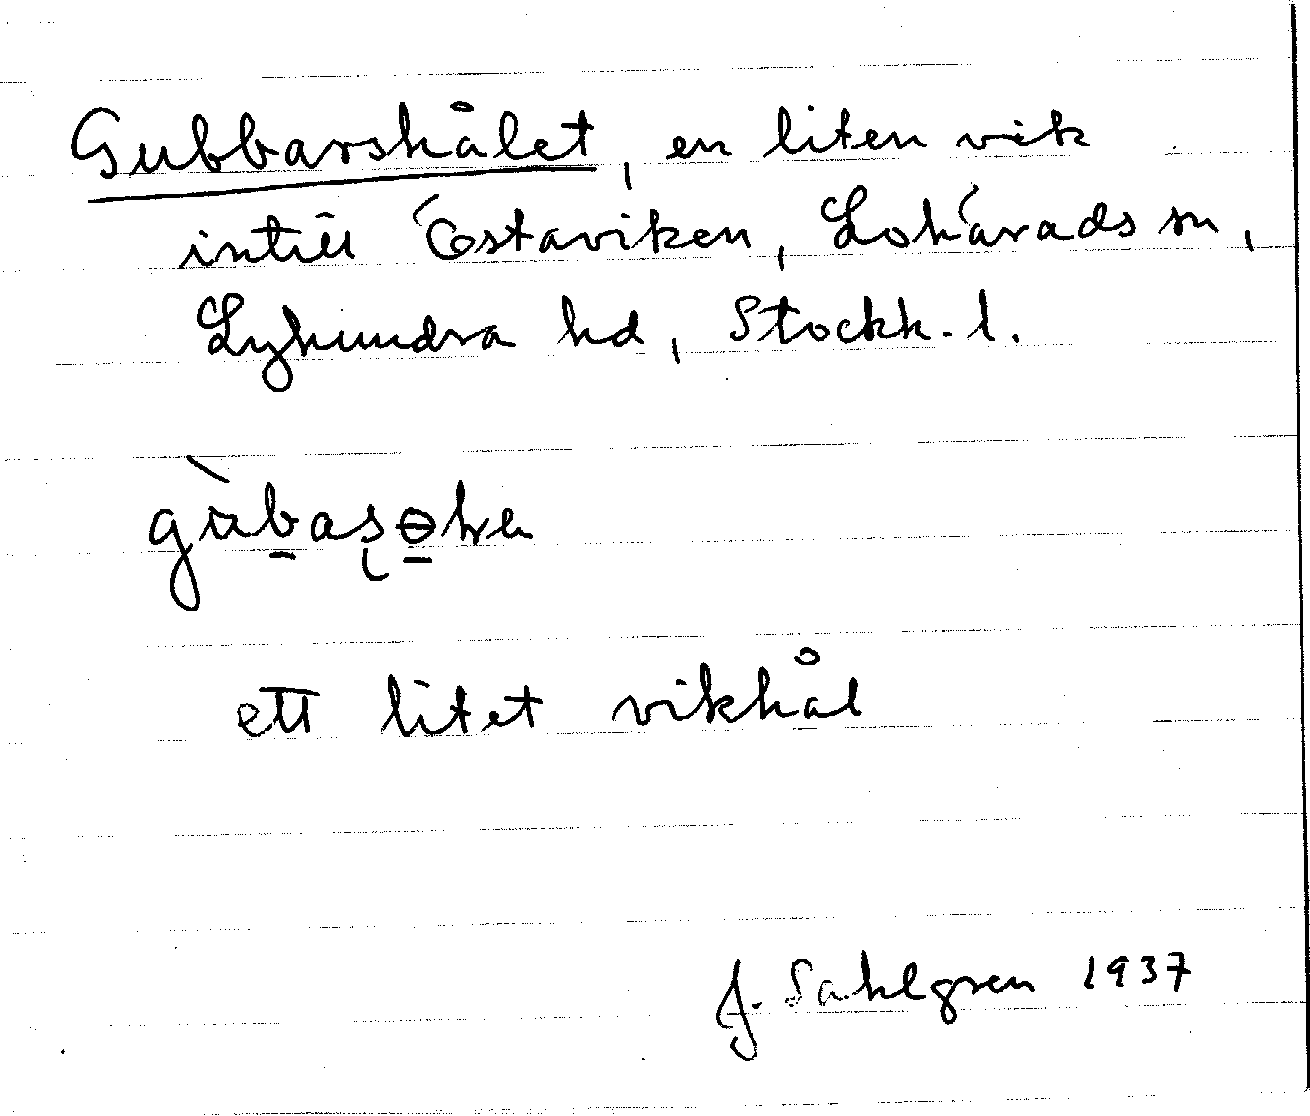 Gubbarshålet, en liten vik
intill Östaviken, Lohärads sn,
Lyhundra hd, Stockh. l.
ett litet vikhål
J. Sahlgren 1937